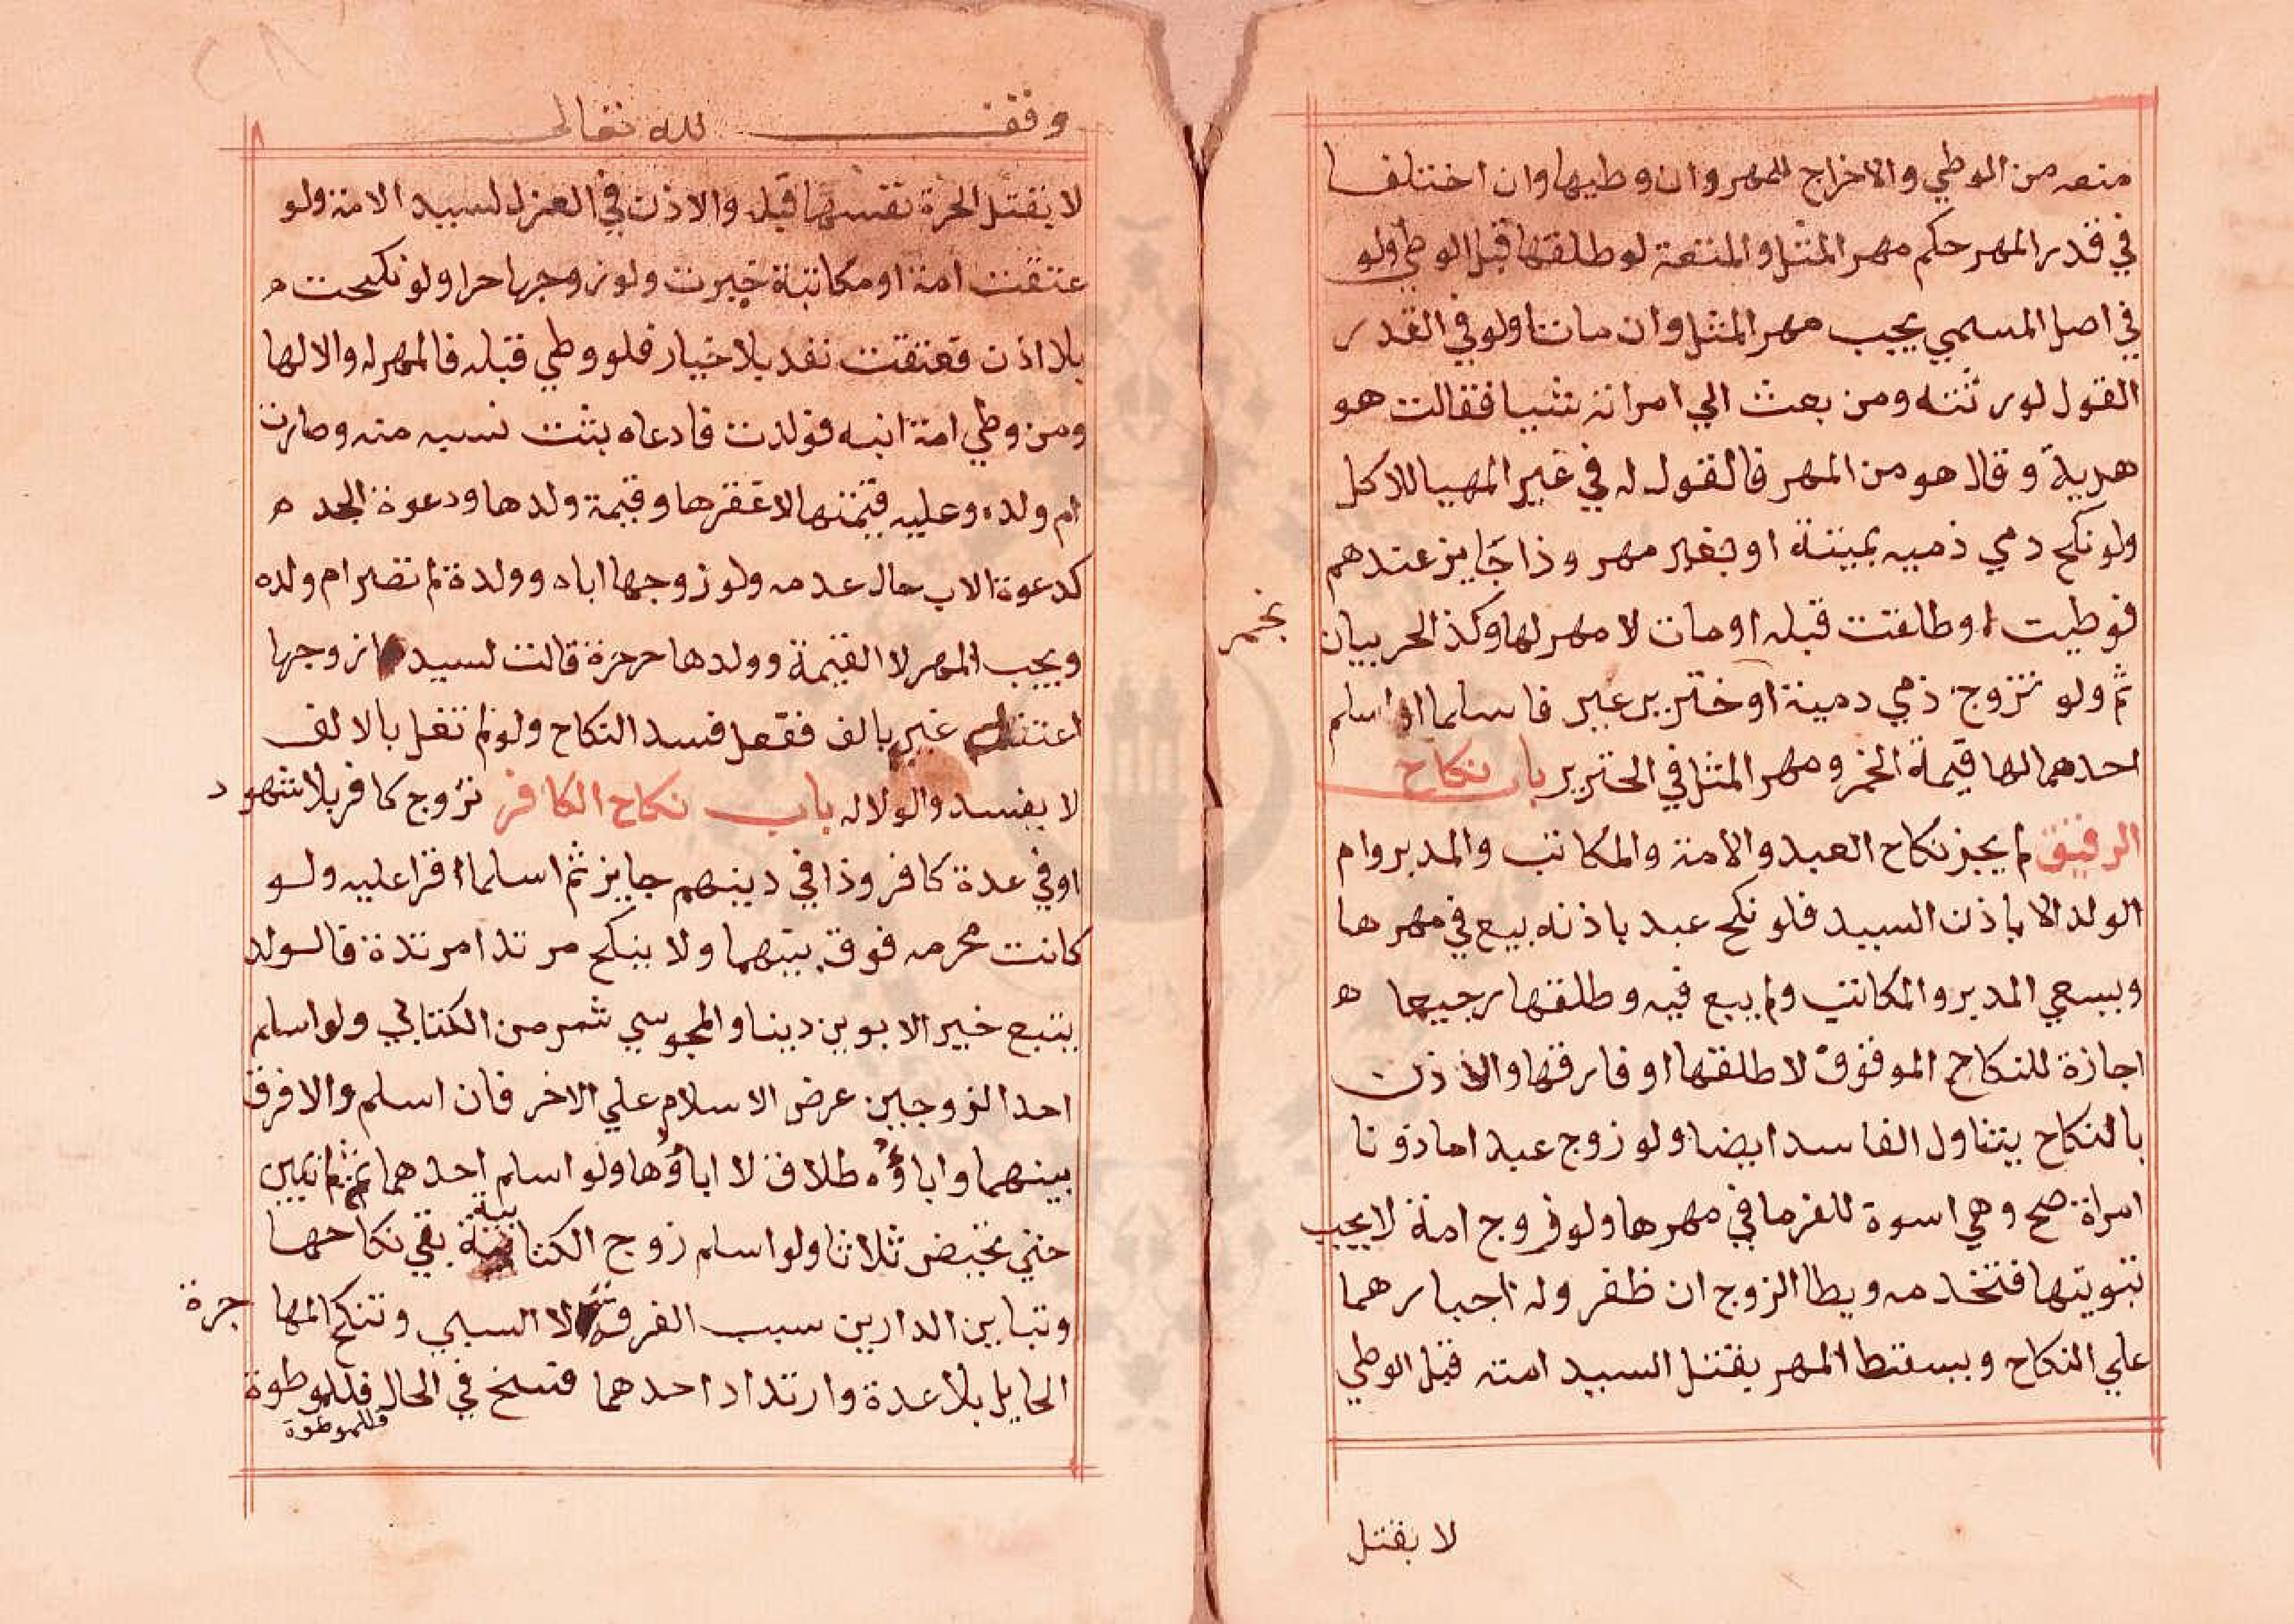 منعه من الوطي والاخراج للمهر وان وطيها وان اختلفا
في قدر المهر حكم مهر المثل والمتعة لو طلقها قبل الوطي ولو
في اصل المسمي يجب مهر المثل وان ماتا ولو في القدر
القول لورثته ومن بعث الي امراته شيا فقالت هو
هدية وقال هو من المهر فالقول له في غير المهيا للاكل
ولو نكح ذمي ذميه بميتة او بغير مهر وذا جايز عندهم
فوطيت او طلقت قبله او مات لا مهر لها وكذ الحربيان
ثم ولو تزوج ذمي دمية او خنزير عين فاسلما او اسلم
بخمر
احدهما لها قيمة الخمر ومهر المثل في الخنزير باب نكاح
الرقيق لم يجز نكاح العبد والامة والمكاتب والمدبر وام
الولد الا باذن السيد فلو نكح عبد باذنه بيع في مهرها
ويسعي المدبر والمكاتب ولم يبع فيه وطلقها رجعيا ه
اجازة للنكاح الموقوف لا طلقها او فارقها والاذن
بالنكاح يتناول الفاسد ايضا ولو زوج عبد اماذونا
امراة صح وهي اسوة للغرما في مهرها ولو زوج امة لا يجب
تبويتها فتخدمه ويطا الزوج ان ظفر وله اجبارهما
علي النكاح ويسقط المهر بقتل السيد امته قبل الوطي
لا بقتل
وقف لله تعالى
لا بقتل الحرة نفسها قبله والاذن في العزل لسيد الامة ولو
عتقت امة او مكاتبة خيرت ولو زوجها حرا ولو نكحت م
بلا اذن فعتقت نفذ بلا خيار فلو وطي قبله فالمهر له والا لها
ومن وطي امة ابنه فولدت فادعاه يثبت نسبه منه وصارت
ام ولده وعليه قيمتها لا عقرها وقيمة ولدها ودعوة الجد م
كدعوة الاب حال عدمه ولو زوجها اباه وولدة لم تصر ام ولده
ويجب المهر لا القيمة وولدها حر حرة قالت لسيد زوجها
اعتقه عني بالف ففعل فسد النكاح ولو لم تقل بالالف
لا يفسد والولا له باب نكاح الكافر تزوج كافر بلا شهود
او في عدة كافر وذا في دينهم جايز ثم اسلما اقرا عليه ولو
كانت محرمه فرق بينهما ولا ينكح مرتد امرتدة فالولد
يتبع خير الابوين دينا والمجوسي شر من الكتابي ولو اسلم
احد الزوجين عرض الاسلام علي الاخر فان اسلم والا فرق
بينهما واباؤه طلاق لا اباؤها ولو اسلم احدهما ثم لم تبين
حتي تحيض ثلاثا ولو اسلم زوج الكتابية بقي نكاحها
وتباين الدارين سبب الفرقة لا السبي وتنكح المها جرة
الحايل بلا عدة وارتداد احدهما فسخ في الحال فللموطوة
فللموطوة